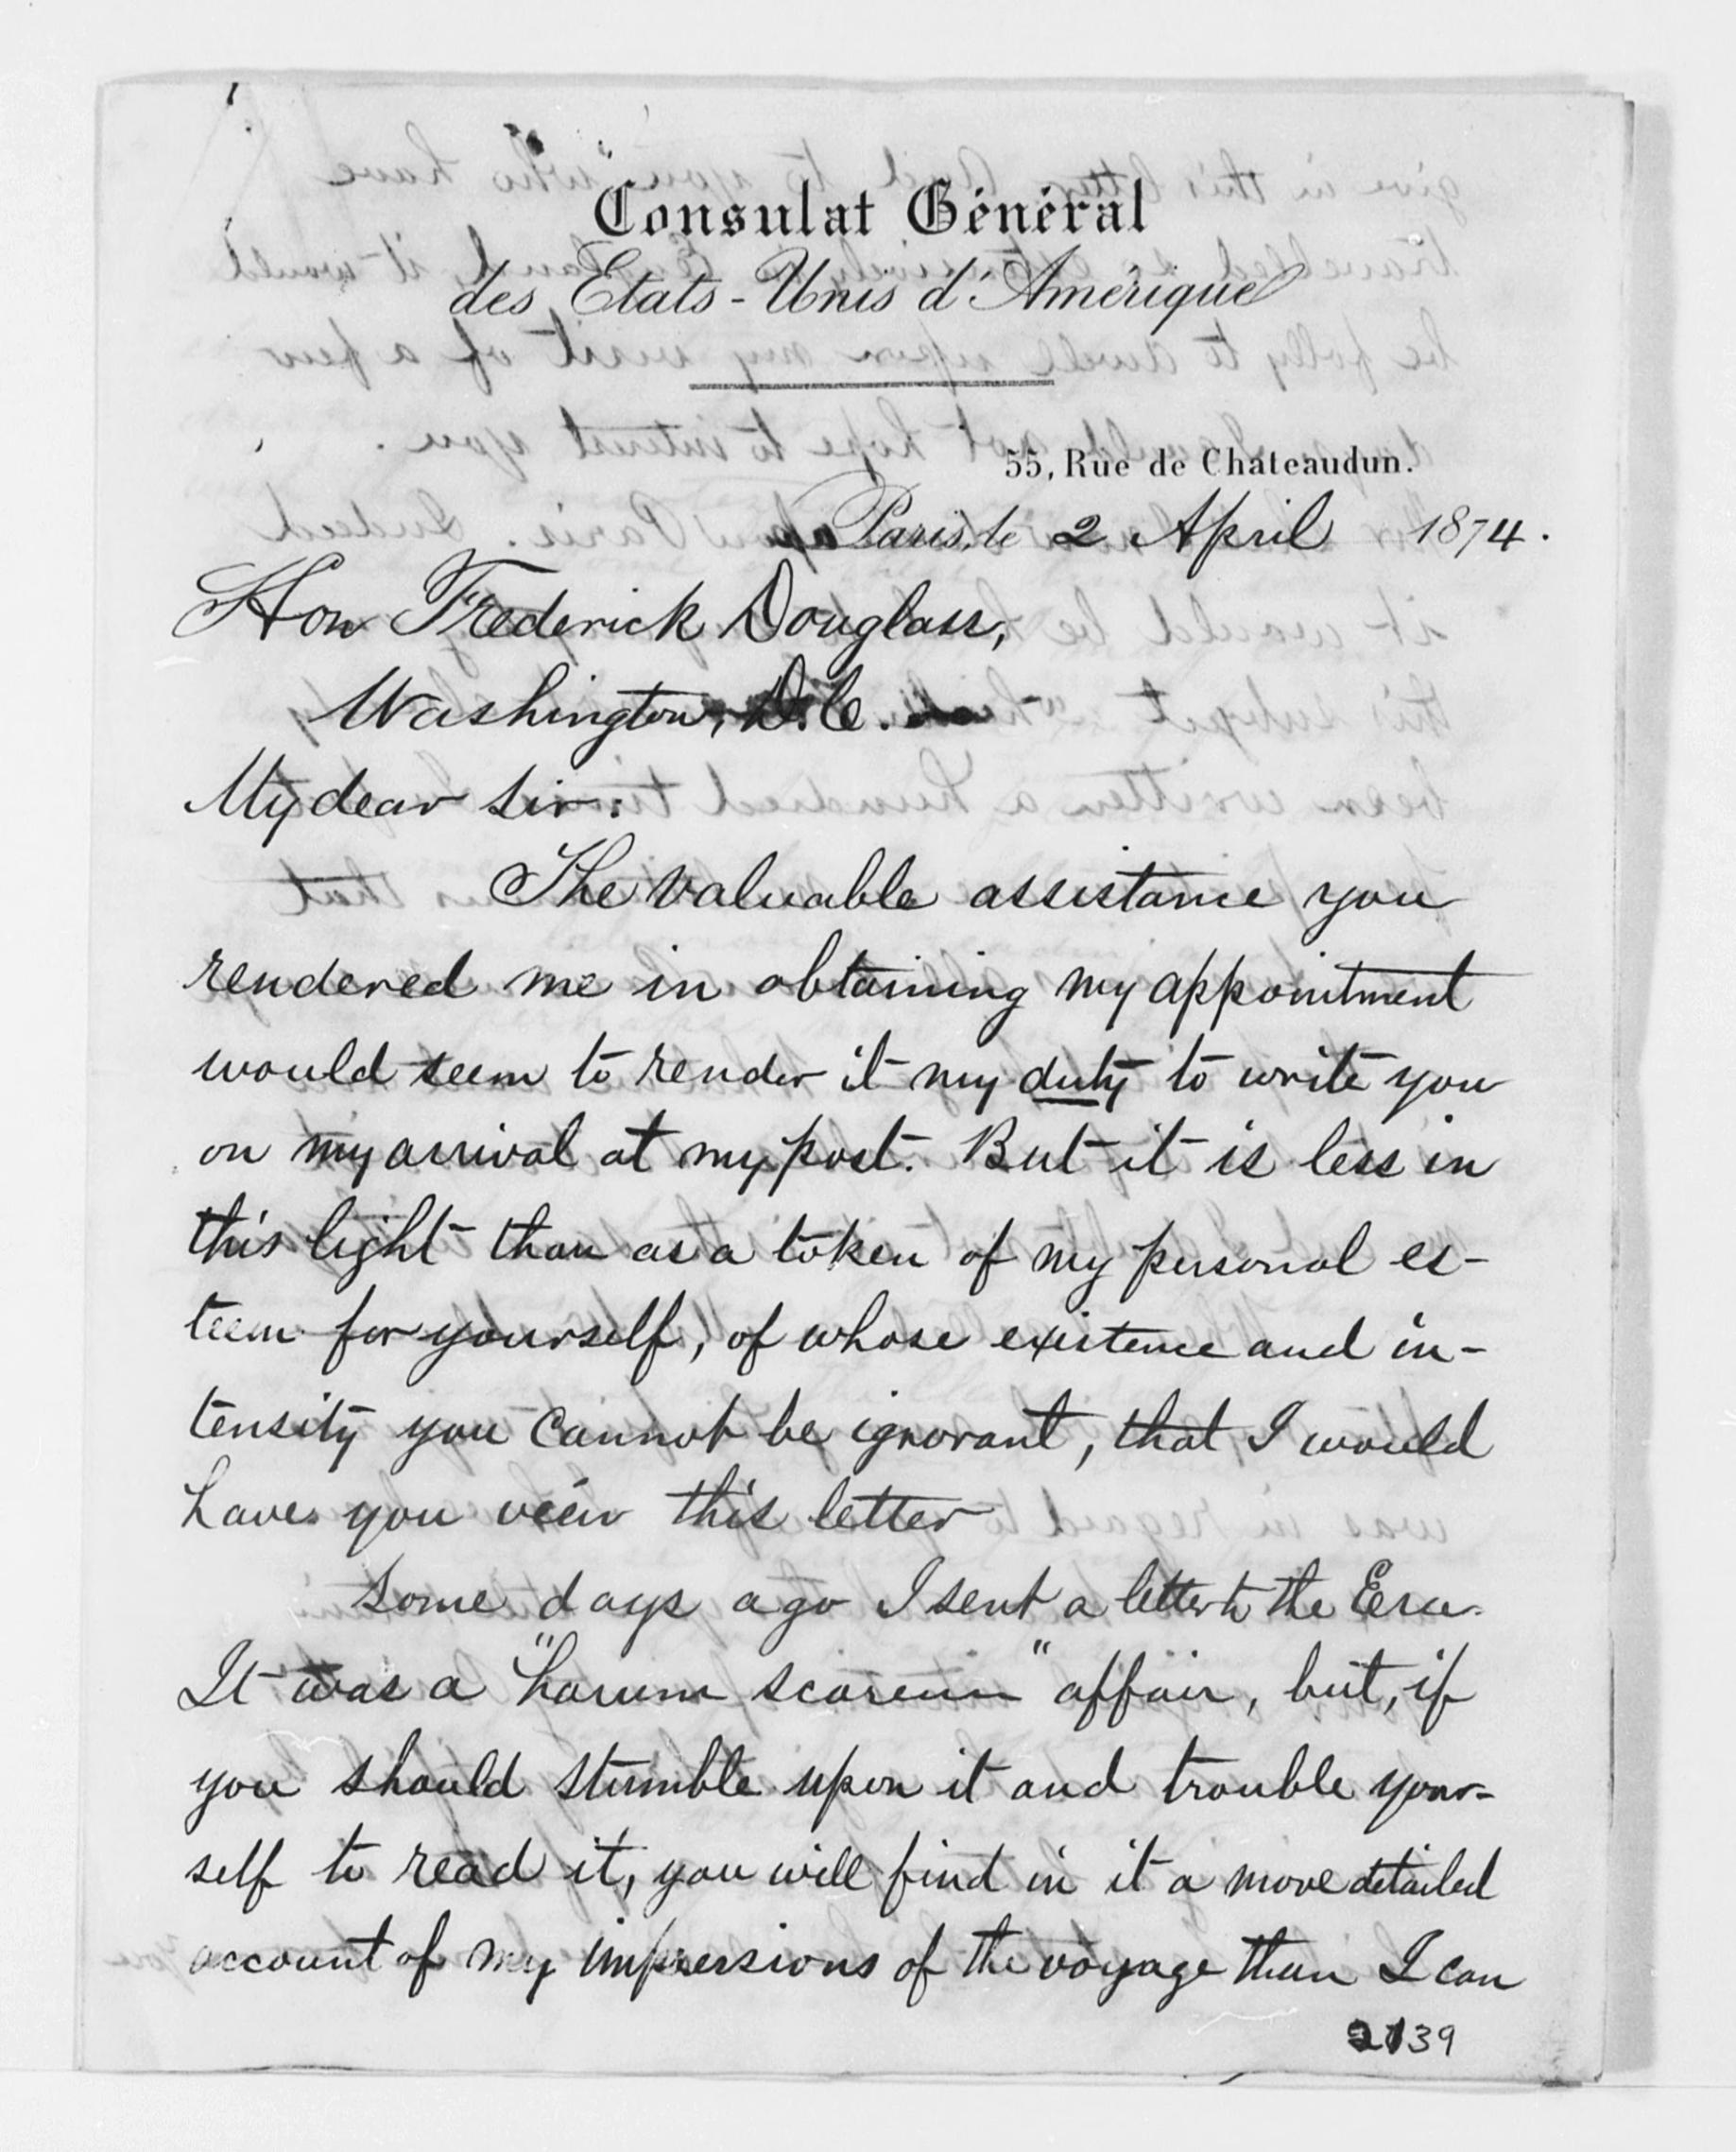 Consulat Général
des Etats-Unis d'Amérique
55, Rue de Chateaudun.
Paris, le 2 April 1874.
Hon Frederick Douglass,
Washington, D.C.
My dear Sir:
The valuable assistance you
rendered me in obtaining my appointment
would seem to render it my duty to write you
on my arrival at my post. But it is less in
this light than as a token of my personal es-
teem for yourself, of whose existence and in-
tensity you cannot be ignorant, that I would
have you veiw this letter
Some days ago I sent a letter to the Era.
It was a "harum scarum" affair, but, if
you should stumble upon it and trouble your-
self to read it, you will find in it a more detailed
account of my impressions of the voyage than I can
2139